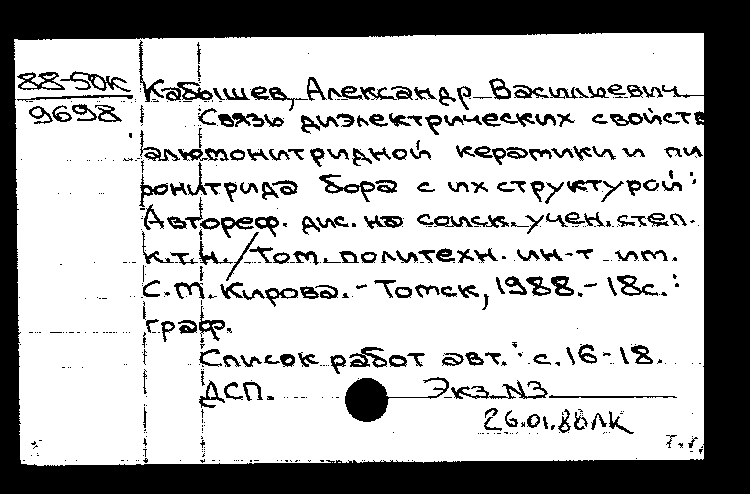 88-50К
9698
Кабышев, Александр Васильевич.
Связь диэлектрических свойств
алюмонитридной керамики и пи
ронитрида бора с их структурой:
Автореф. дис. на соиск. учен. степ.
к.т.н. / Том. политехн. ин-т им.
С.М. Кирова. - Томск, 1988. - 18с.:
граф.
Список работ авт.: с. 16-18.
ДСП. Экз. N3
26.01.88ЛК